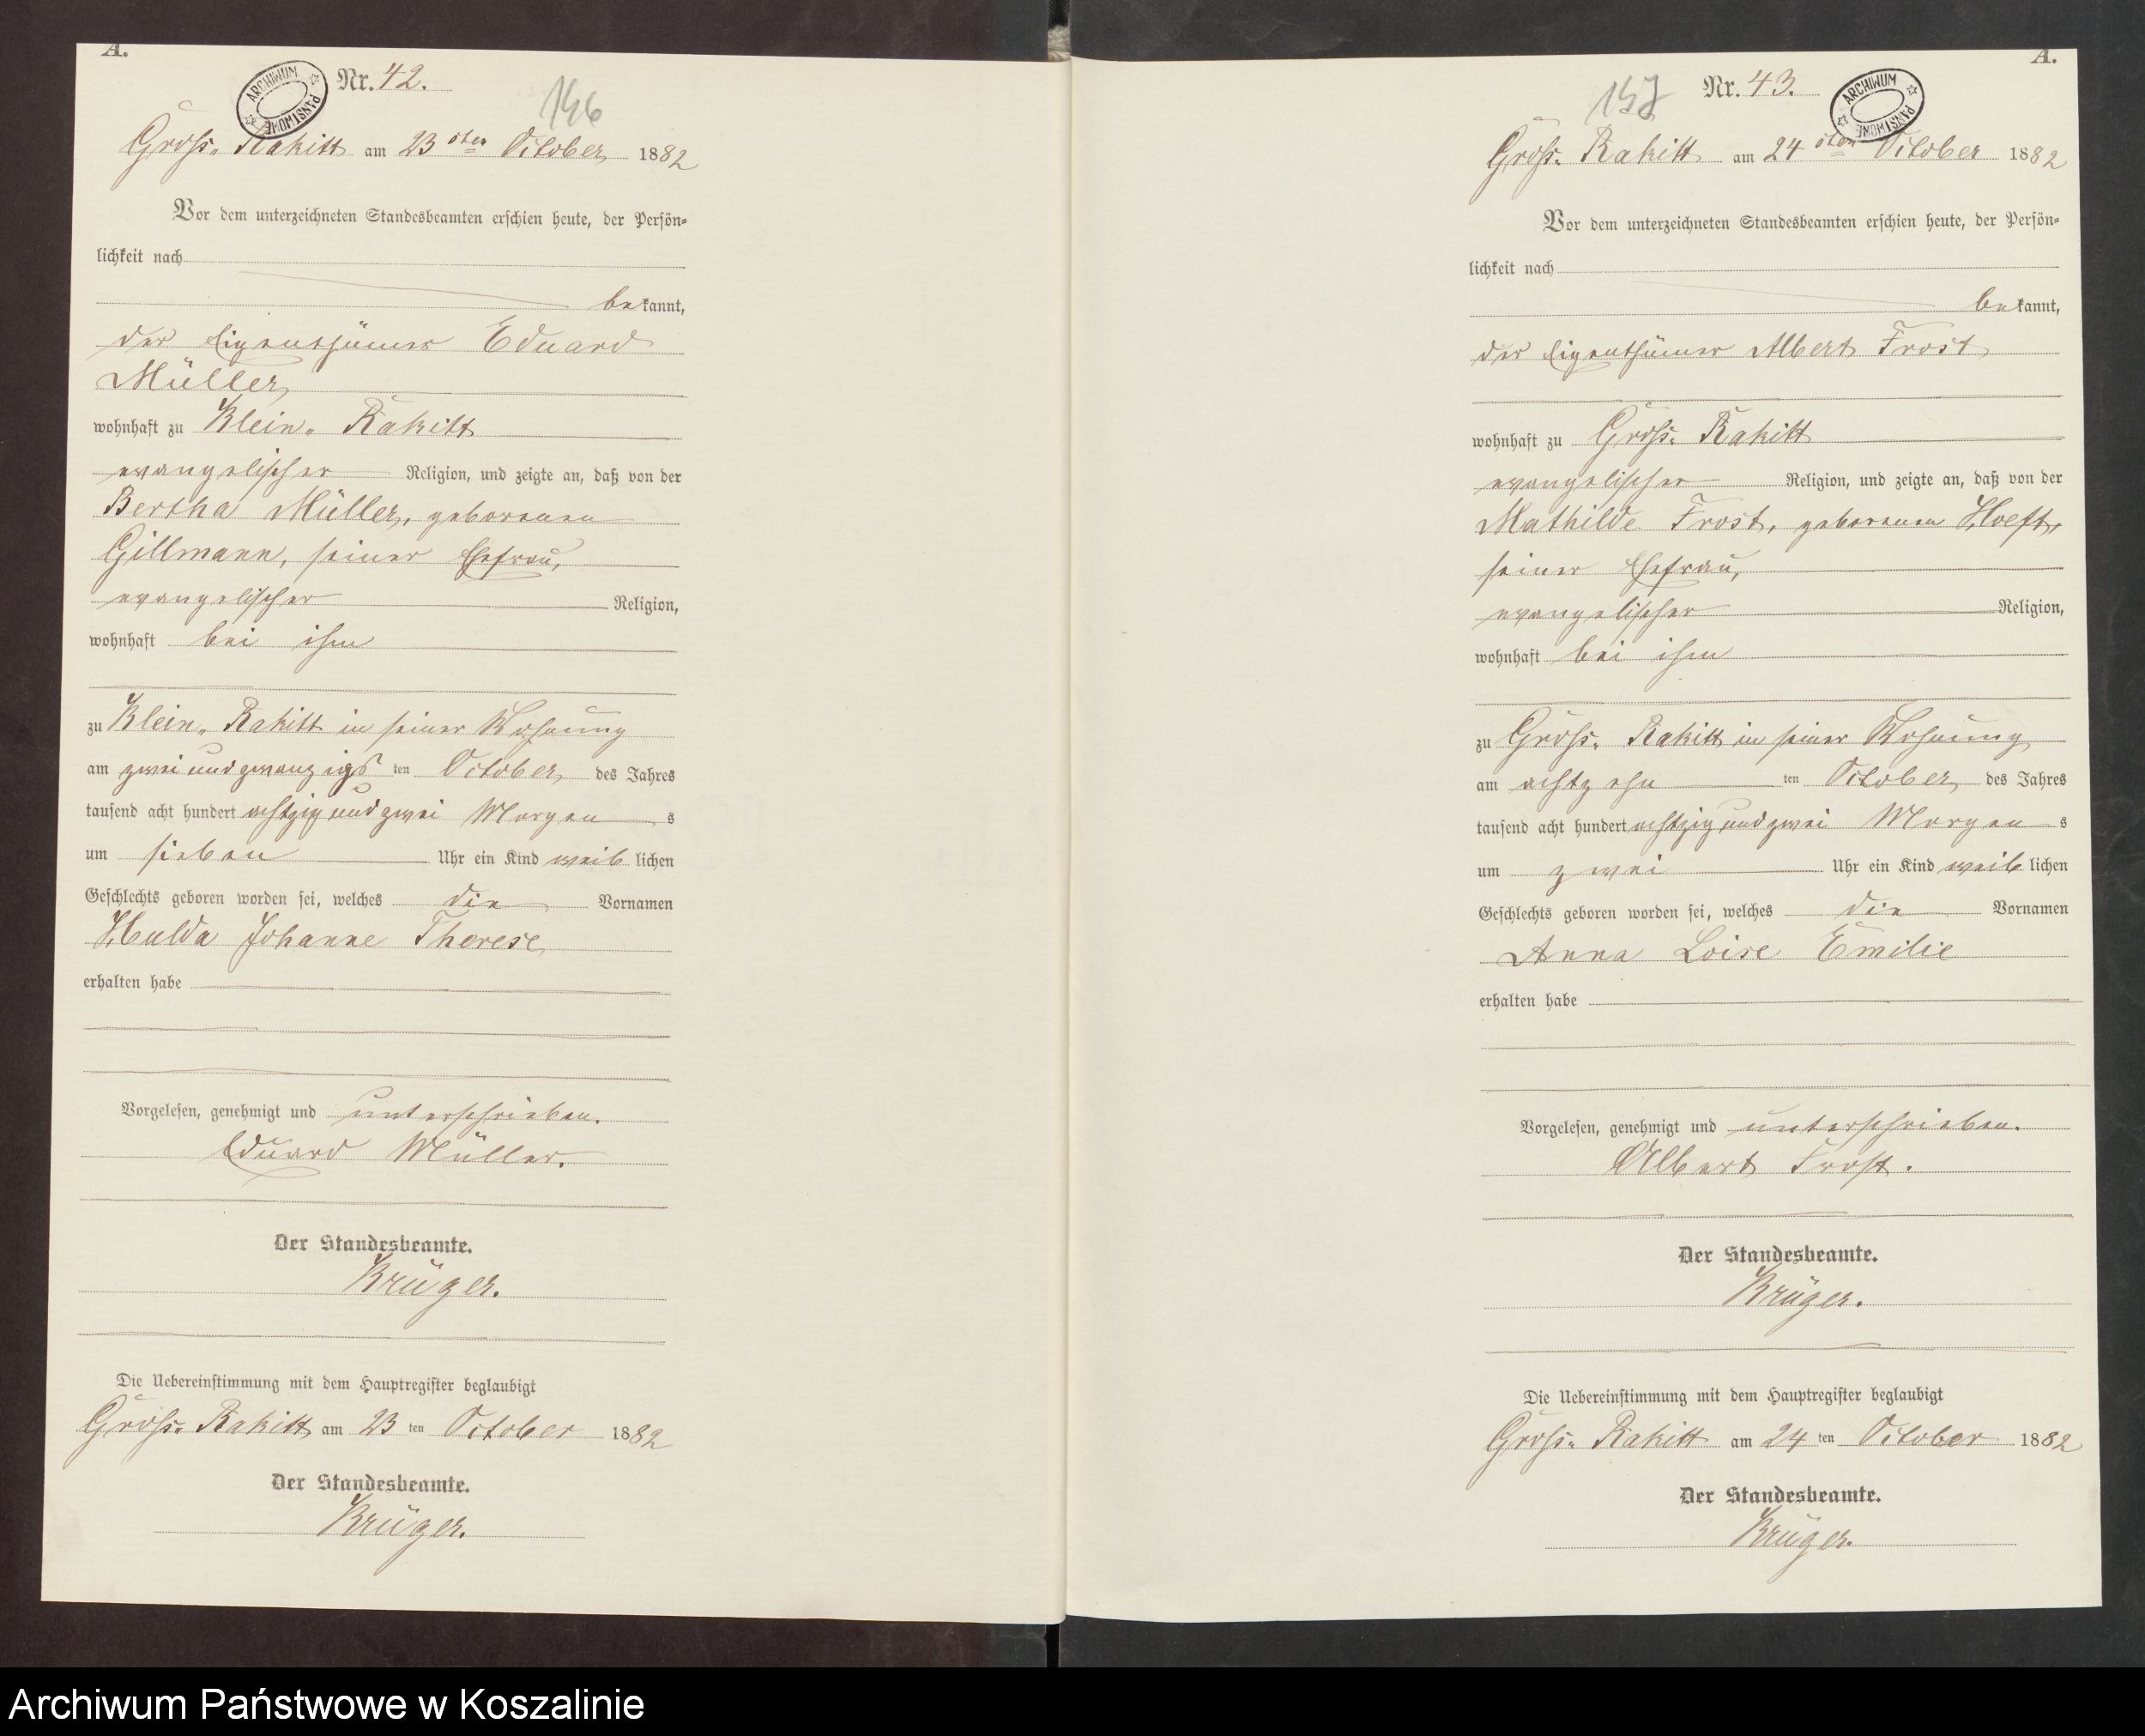 A.
ARCHIWUM PAŃSTWOWE
Nr. 42.
146
Groß. Rakitt am 23 sten October 1882
Vor dem unterzeichneten Standesbeamten erschien heute, der Persön-
lichkeit nach
bekannt,
der Eigenthümer Eduard
Müller
wohnhaft zu Klein. Rakitt
evangelischer Religion, und zeigte an, daß von der
Bertha Müller, geborenen
Gillmann, seiner Ehefrau,
evangelischer Religion,
wohnhaft bei ihm
zu Klein. Rakitt in seiner Wohnung
am zwei und zwanzigs ten October des Jahres
tausend acht hundert achtzig und zwei Morgens
um sieben Uhr ein Kind weiblichen
Geschlechts geboren worden sei, welches die Vornamen
Hulda Johanne Therese
erhalten habe
Vorgelesen, genehmigt und unterschrieben.
Eduard Müller.
Der Standesbeamte.
Krüger.
Die Uebereinstimmung mit dem Hauptregister beglaubigt
Groß. Rakitt am 23 ten October 1882
Der Standesbeamte.
Krüger.
A.
157
Nr. 43.
ARCHIWUM PAŃSTWOWE
Groß. Rakitt am 24 sten October 1882
Vor dem unterzeichneten Standesbeamten erschien heute, der Persön-
lichkeit nach
bekannt,
der Eigenthümer Albert Frost
wohnhaft zu Groß. Rakitt
evangelischer Religion, und zeigte an, daß von der
Mathilde Frost, geborenen Hoeft,
seiner Ehefrau,
evangelischer Religion,
wohnhaft bei ihm
zu Groß. Rakitt in seiner Wohnung
am achtzehn ten October des Jahres
tausend acht hundert achtzig und zwei Morgens
um zwei Uhr ein Kind weiblichen
Geschlechts geboren worden sei, welches die Vornamen
Anna Loise Emilie
erhalten habe
Vorgelesen, genehmigt und unterschrieben.
Albert Frost.
Der Standesbeamte.
Krüger.
Die Uebereinstimmung mit dem Hauptregister beglaubigt
Groß. Rakitt am 24 ten October 1882
Der Standesbeamte.
Krüger.
Archiwum Państwowe w Koszalinie